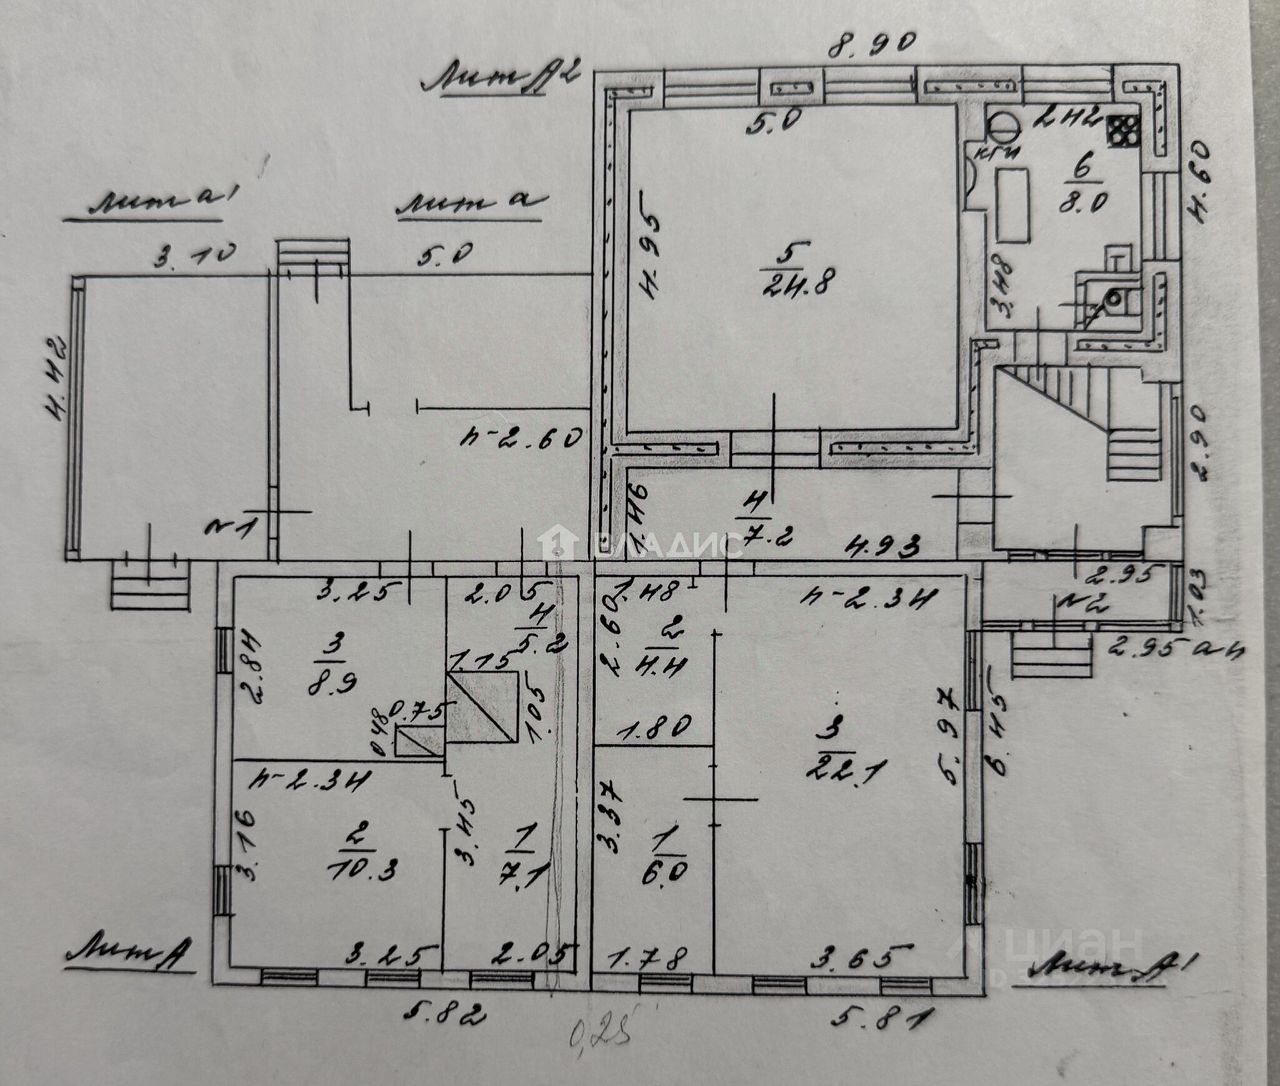 8.90
Лит А2
5.0
2.42
кгн
6
8.0
4.60
Лит а1
Лит а
3.10
5.0
4.95
5
24.8
3.48
4.42
h-2.60
2.90
№1
1.46
4
7.2
4.93
ВЛАДИС
2.95
1.03
3.25
2.05
1.48
h-2.34
№2
2.95
2.84
3
8.9
4
5.2
2.60
2
4.4
1.15
0.75
0.48
1.05
1.80
3
22.1
5.97
6.45
h-2.34
3.16
2
10.3
3.45
1
7.1
3.37
1
6.0
Лит А
3.25
2.05
1.78
3.65
циан
Лит А1
5.82
0,25
5.81